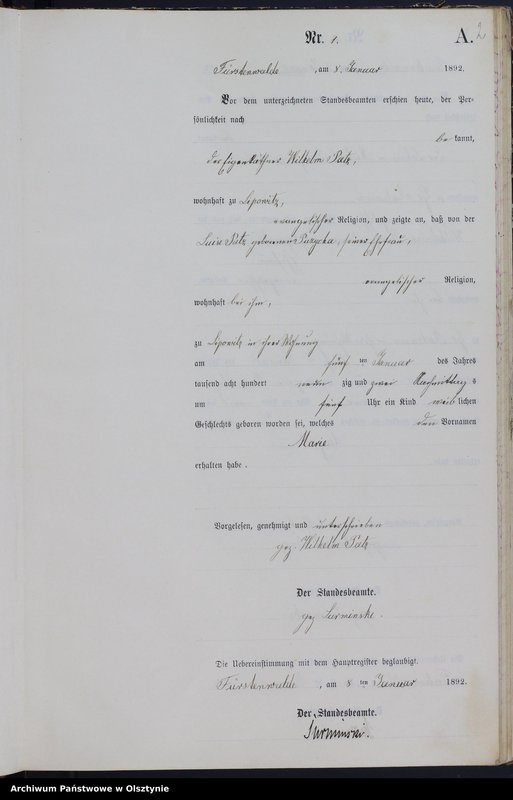 Nr. 1. A. 2
Fürstenwalde, am 8. Januar 1892.
Vor dem unterzeichneten Standesbeamten erschien heute, der Per-
sönlichkeit nach
be kannt,
der Eigenkäthner Wilhelm Patz,
wohnhaft zu Lipowitz,
evangelischer Religion, und zeigte an, daß von der
Luise Patz geborenen seiner Ehefrau,
evangelischer Religion,
wohnhaft bei ihm,
zu Lipowitz in ihrer Wohnung
am fünf ten Januar des Jahres
tausend acht hundert neun zig und zwei Nachmittag s
um fünf Uhr ein Kind weib lichen
Geschlechts geboren worden sei, welches den Vornamen
Marie
erhalten habe.
Vorgelesen, genehmigt und unterschrieben
gez. Wilhelm Patz
Der Standesbeamte.
gez Surminski.
Die Uebereinstimmung mit dem Hauptregister beglaubigt.
Fürstenwalde, am 8 ten Januar 1892.
Der Standesbeamte.
Surminski.
Archiwum Państwowe w Olsztynie